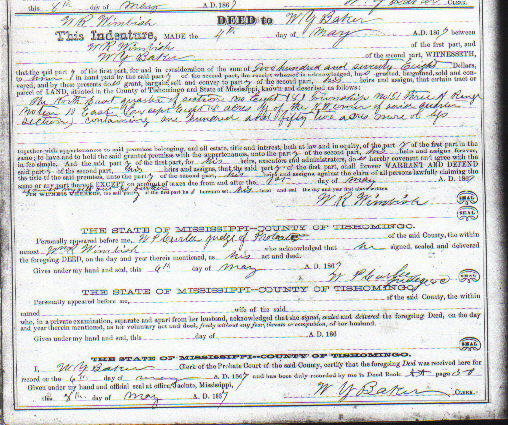 this 6th day of May A. D. 1867
W. R. Wimbish DEED to W Y Baker
This Indenture, MADE the 4th day of May A. D. 1867 between
W R Wimbish of the first part, and
W Y Baker of the second part, WITNESSETH,
that the said party of the first part, for and in consideration of the sum of Five hundred and seventy Eight Dollars,
in hand paid by the said party of the second part, the receipt whereof is acknowledged, has granted, bargained, sold and con-
veyed, and by these presents do grant, bargain, sell and convey to party of the second part, his heirs and assigns, that certain tract or
parcel of LAND, situated in the County of Tishomingo and State of Mississippi, known and described as follows:
The North quarter of section No Eight (8) Township No (5) Three of Range
No Ten 10 East Except Eight acres of of the corner of said quarter
Section containing one hundred and fifty two acres more or less
together with appurtenances to said premises belonging, and all estate, title and interest, both at law and in equity, of the party of the first part in the
same; to have and to hold the said granted premises with the appurtenances, unto the party of the second part, his heirs and assigns forever,
in fee simple. And the said party of the first part, for his heirs, executors and administrators, do hereby covenant and agree with the
said party of the second part, his heirs and assigns, that the said party of the first part, shall forever WARRANT AND DEFEND
the said premises, unto the party of the second part, his heirs and assigns against the claim of all persons lawfully claiming the
same or any part thereof, EXCEPT on account of taxes due from and after the day of A. D. 186
IN WITNESS WHEREOF, the said party of the first part has hereunto set his hand and seal the day and year first above written.
W R Wimbish SEAL
SEAL
THE STATE OF MISSISSIPPI-COUNTY OF TISHOMINGO.
Personally appeared before me, W P Curlee Judge of Probate of the said County, the within
named Wm R Wimbish who acknowledged that he signed, sealed and delivered
the foregoing DEED, on the day and year therein mentioned, as his act and deed.
Given under my hand and seal, this 6th day of May A. D. 1867
W P Curlee SEAL
Judge
THE STATE OF MISSISSIPPI-COUNTY OF TISHOMINGO.
Personally appeared before me, of the said County, the within
named wife of the said
who, in a private examination, separate and apart from her husband, acknowledged that she signed, sealed and delivered the foregoing Deed, on the day
and year therein mentioned, as her voluntary act and deed, freely without any fear, threats or compulsion, of her husband.
Given under my hand and seal, this day of A. D. 186
SEAL
THE STATE OF MISSISSIPPI-COUNTY OF TISHOMINGO.
I, W Y Baker Clerk of the Probate Court of the said County, certify that the foregoing Deed was received here for
record on the 6th day of May A. D. 1867 and has been duly recorded by me in Deed Book page
Given under my hand and official seal at office, Jacinto, Mississippi,
this 8th day of May A. D. 1867 W Y Baker CLERK.